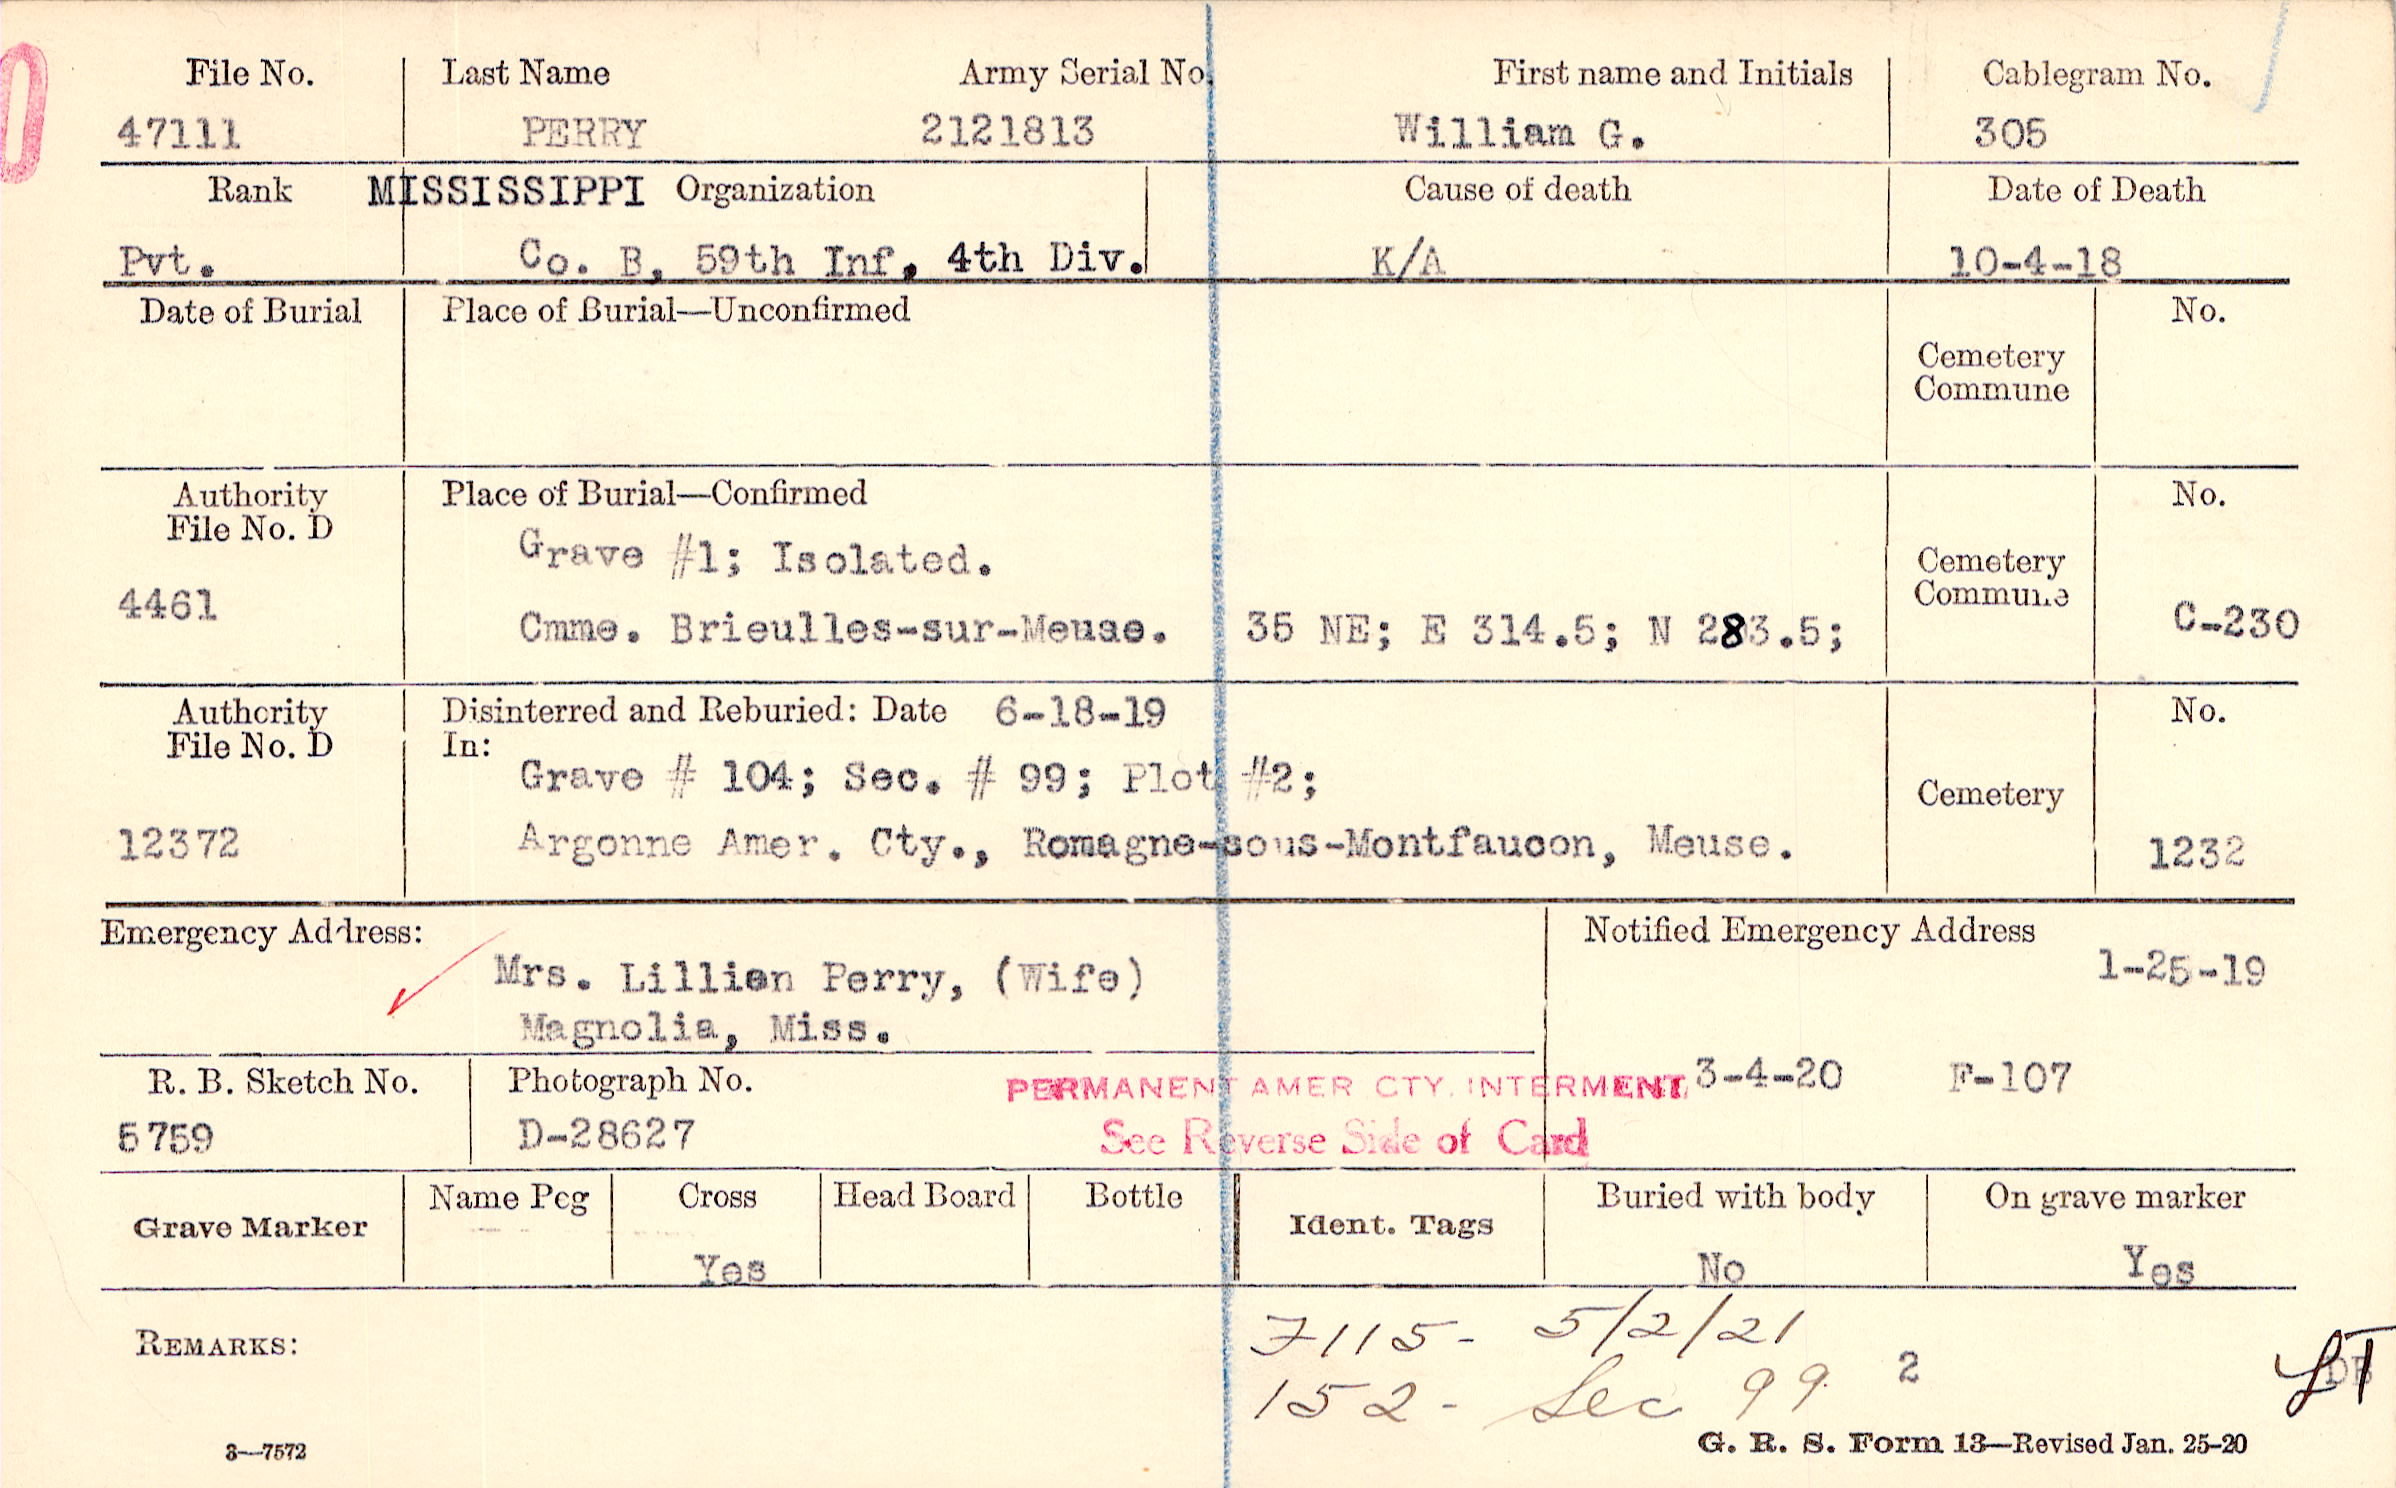 File No. Last Name Army Serial No. First name and Initials Cablegram No.
47111 PERRY 2121813 William G. 305
Rank MISSISSIPPI Organization Cause of death Date of Death
Pvt. Co. B, 59th Inf, 4th Div. K/A 10-4-18
Date of Burial Place of Burial—Unconfirmed No.
Cemetery
Commune
Authority Place of Burial—Confirmed No.
File No. D
Grave #1; Isolated.
Cemetery
Commune
4461 Cmme. Brieulles-sur-Meuse. 35 NE; E 314.5; N 283.5; C-230
Authority Disinterred and Reburied: Date 6-18-19 No.
File No. D In:
Grave # 104; Sec. # 99; Plot #2;
Cemetery
12372 Argonne Amer. Cty., Romagne-sous-Montfaucon, Meuse. 1232
Emergency Address: Notified Emergency Address
Mrs. Lillian Perry, (Wife) 1-25-19
Magnolia, Miss.
R. B. Sketch No. Photograph No. PERMANENT AMER CTY. INTERMENT 3-4-20 F-107
5759 D-28627 See Reverse Side of Card
Grave Marker Name Peg Cross Head Board Bottle Ident. Tags Buried with body On grave marker
Yes No Yes
REMARKS: 7115- 5/2/21
152- Sec 99 2
3—7572 G. R. S. Form 13—Revised Jan. 25-20